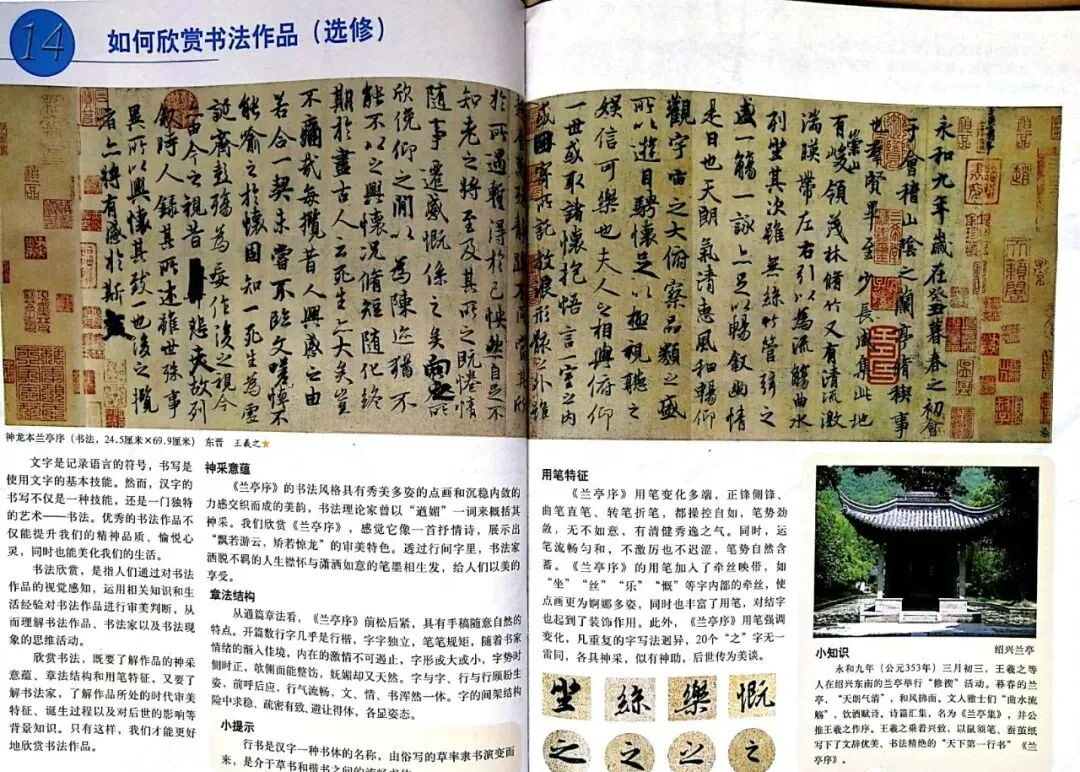 14
如何欣赏书法作品（选修）
永和九年歲在癸丑暮春之初會
于會稽山陰之蘭亭脩稧事
也羣賢畢至少長咸集此地
有崇山峻領茂林脩竹又有清流激
湍暎帶左右引以為流觴曲水
列坐其次雖無絲竹管弦之
盛一觴一詠亦足以暢敘幽情
是日也天朗氣清惠風和暢仰
觀宇宙之大俯察品類之盛
所以遊目騁懷足以極視聽之
娛信可樂也夫人之相與俯仰
一世或取諸懷抱悟言一室之內
或因寄所託放浪形骸之外雖
靜躁不同當其欣
於所遇暫得於己怏然自足不
知老之將至及其所之既惓情
隨事遷感慨係之矣向之所
欣俛仰之閒以為陳迹猶不
能不以之興懷況脩短隨化終
期於盡古人云死生亦大矣豈
不痛哉每攬昔人興感之由
若合一契未嘗不臨文嗟悼不
能喻之於懷固知一死生為虛
誕齊彭殤為妄作後之視今
亦由今之視昔悲夫故列
敘時人錄其所述雖世殊事
異所以興懷其致一也後之攬
者亦將有感於斯文
神龙本兰亭序（书法，24.5厘米×69.9厘米） 东晋 王羲之★
文字是记录语言的符号，书写是
使用文字的基本技能。然而，汉字的
书写不仅是一种技能，还是一门独特
的艺术——书法。优秀的书法作品不
仅能提升我们的精神品质、愉悦心
灵，同时也能美化我们的生活。
书法欣赏，是指人们通过对书法
作品的视觉感知，运用相关知识和生
活经验对书法作品进行审美判断，从
而理解书法作品、书法家以及书法现
象的思维活动。
欣赏书法，既要了解作品的神采
意蕴、章法结构和用笔特征，又要了
解书法家，了解作品所处的时代审美
特征、诞生过程以及对后世的影响等
背景知识。只有这样，我们才能更好
地欣赏书法作品。
神采意蕴
《兰亭序》的书法风格具有秀美多姿的点画和沉稳内敛的
力感交织而成的美韵，书法理论家曾以“遒媚”一词来概括其
神采。我们欣赏《兰亭序》，感觉它像一首抒情诗，展示出
“飘若游云，矫若惊龙”的审美特色。透过行间字里，书法家
洒脱不羁的人生襟怀与潇洒如意的笔墨相生发，给人们以美的
享受。
章法结构
从通篇章法看，《兰亭序》前松后紧，具有手稿随意自然的
特点。开篇数行字几乎是行楷，字字独立，笔笔规矩，随着书家
情绪的渐入佳境，内在的激情不可遏止，字形或大或小，字势时
侧时正，欹侧而能整饬，妩媚却又天然。字与字、行与行顾盼生
姿，前呼后应，行气流畅，文、情、书浑然一体。字的间架结构
险中求稳、疏密有致、避让得体，各显姿态。
小提示
行书是汉字一种书体的名称，由俗写的草率隶书演变而
来，是介于草书和楷书之间的
用笔特征
《兰亭序》用笔变化多端，正锋侧锋、
曲笔直笔、转笔折笔，都操控自如，笔势劲
敛，无不如意，有清健秀逸之气。同时，运
笔流畅匀和，不激厉也不迟涩，笔势自然含
蓄。《兰亭序》的用笔加入了牵丝映带，如
“坐”“丝”“乐”“慨”等字内部的牵丝，使
点画更为婀娜多姿，同时也丰富了用笔，对结字
也起到了装饰作用。此外，《兰亭序》用笔强调
变化，凡重复的字写法迥异，20个“之”字无一
雷同，各具神采，似有神助，后世传为美谈。
坐 絲 樂 慨
之 之 之 之
绍兴兰亭
小知识
永和九年（公元353年）三月初三，王羲之等
人在绍兴东南的兰亭举行“修禊”活动。暮春的兰
亭，“天朗气清”，和风拂面，文人雅士们“曲水流
觞”，饮酒赋诗，诗篇汇集，名为《兰亭集》，并公
推王羲之作序。王羲之乘着兴致，以鼠须笔、蚕茧纸
写下了文辞优美、书法精绝的“天下第一行书”《兰
亭序》。